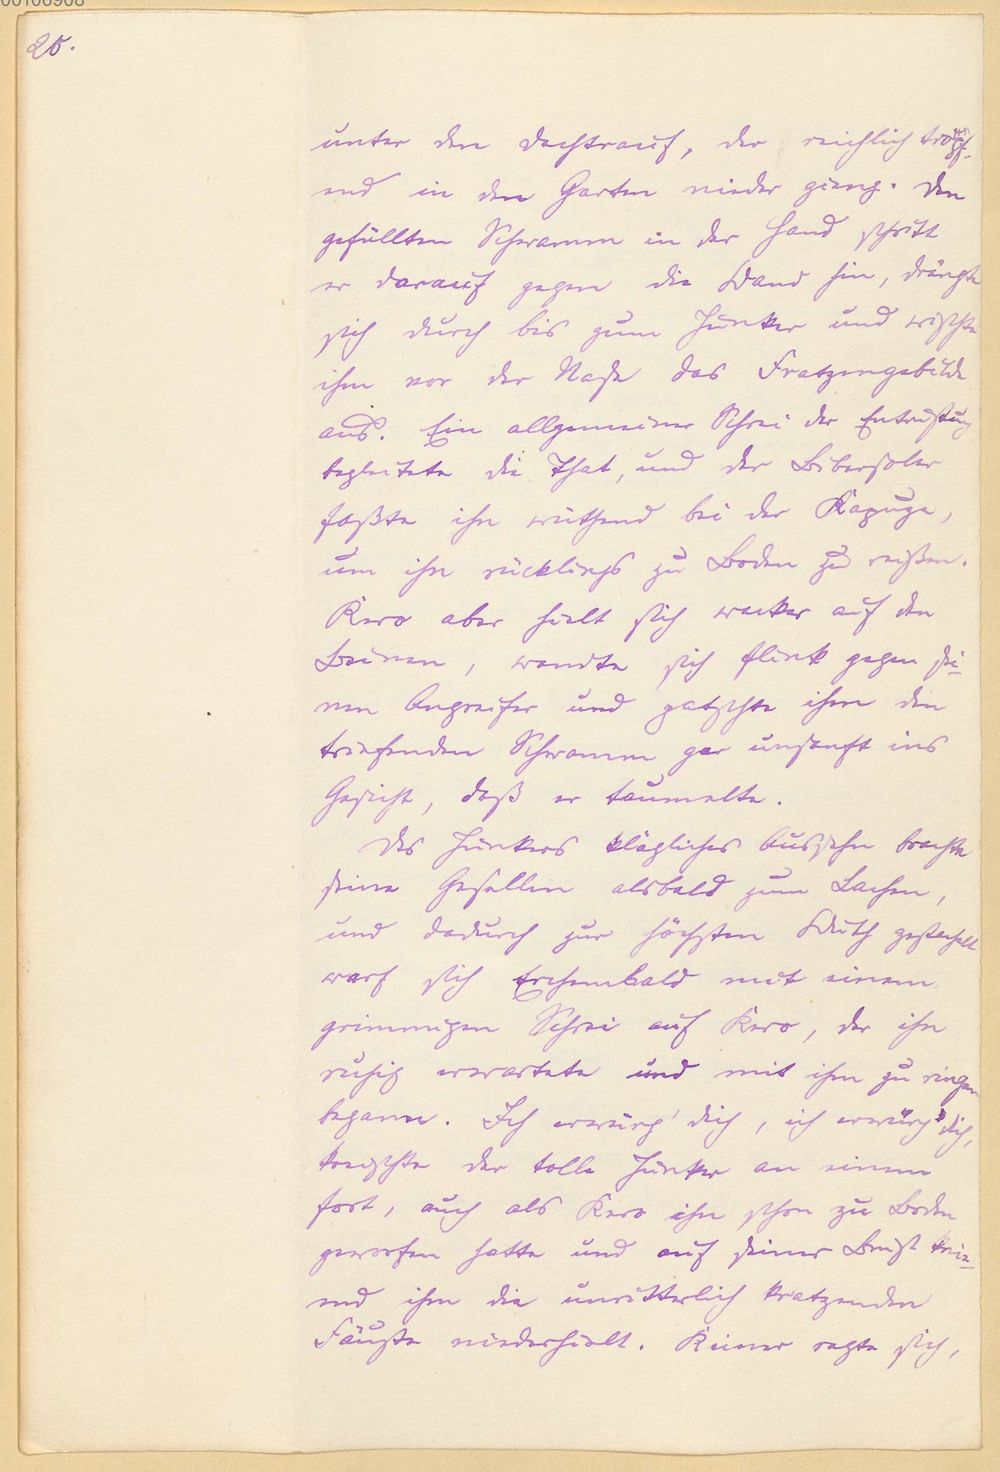 00106908
20.
unter den Dachtrauf, der reichlich tropf-
end in den Garten nieder gieng. Den
gefüllten Schwamm in der Hand schritt
er darauf gegen die Wand hin, drängte
sich durch bis zum Junker und wischte
ihm vor der Nase das Fratzengebilde
aus. Ein allgemeiner Schrei der Entrüstung
begleitete die That, und der Bibersoler
faßte ihn wüthend bei der Kapuze,
um ihn rücklings zu Boden zu reißen.
Kero aber hielt sich wacker auf den
Beinen, wandte sich flink gegen sei-
nen Angreifer und patschte ihm den
triefenden Schwamm gar unsanft ins
Gesicht, daß er taumelte.
Des Junkers klägliches Aussehn brachte
seine Gesellen alsbald zum Lachen,
und dadurch zur höchsten Wuth gestachelt
warf sich Erchembald mit einem
grimmigen Schrei auf Kero, der ihn
ruhig erwartete und mit ihm zu ringen
begann. Ich erwürg' dich, ich erwürg' dich,
kreischte der tolle Junker an einem
fort, auch als Kero ihn schon zu Boden
geworfen hatte und auf seiner Brust knie-
end ihm die unritterlich kratzenden
Fäuste niederhielt. Keiner regte sich,